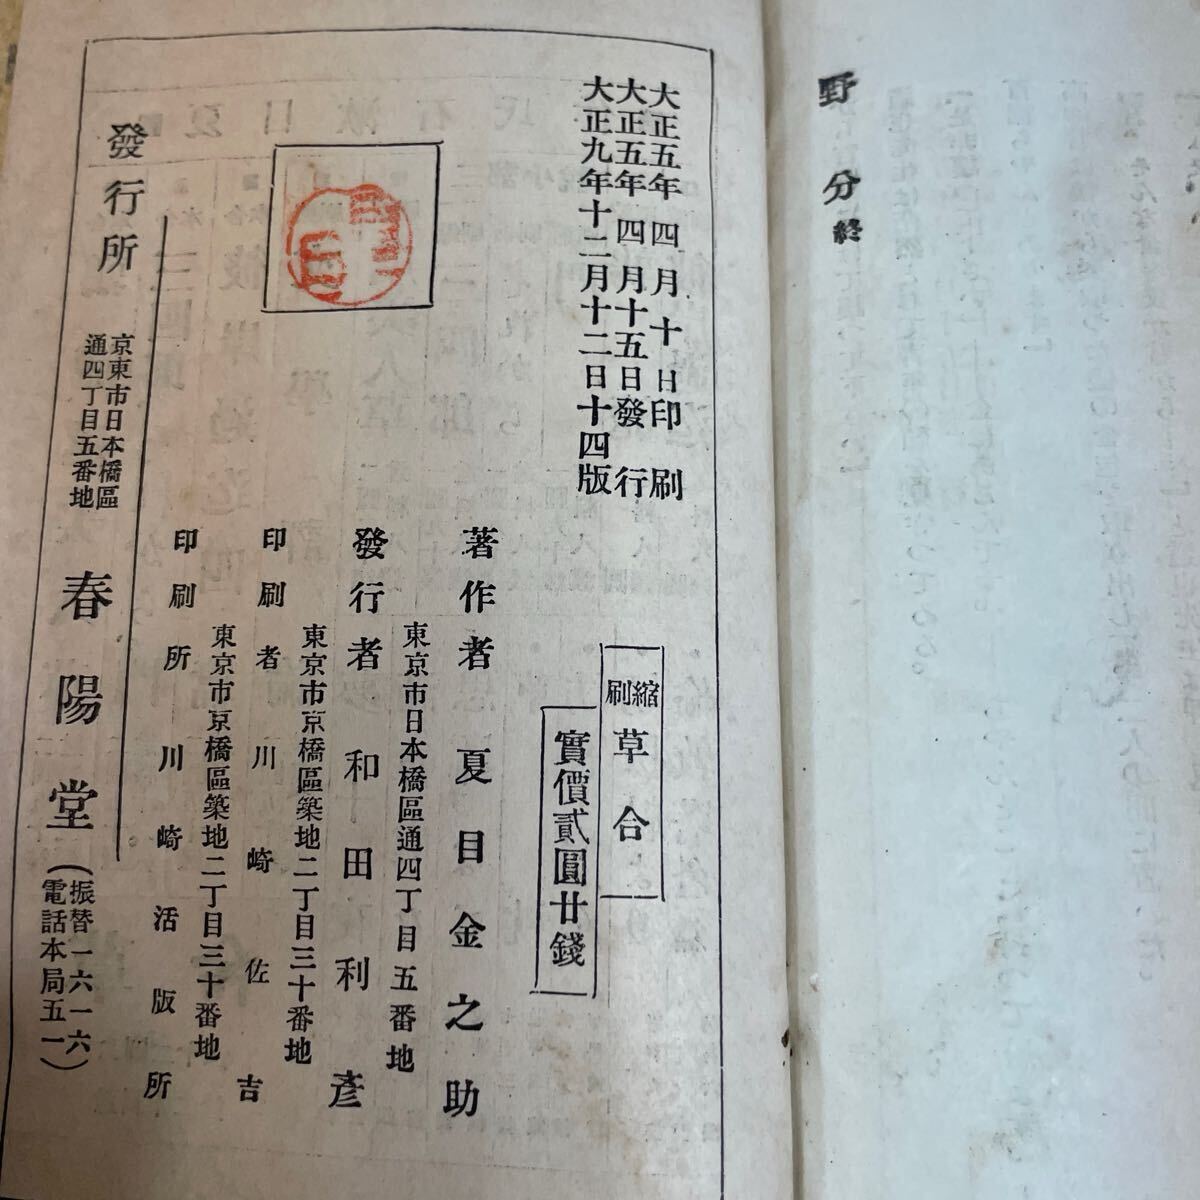 野分終
大正五年四月十日印刷
大正五年四月十五日發行
大正九年十二月十二日十四版
縮刷草合
實價貳圓廿錢
著作者 夏目金之助
東京市日本橋區通四丁目五番地
發行者 和田利彥
東京市京橋區築地二丁目三十番地
印刷者 川崎佐吉
東京市京橋區築地二丁目三十番地
印刷所 川崎活版所
發行所
京東市日本橋區
通四丁目五番地
春陽堂
(振替一六一六
電話本局五一)